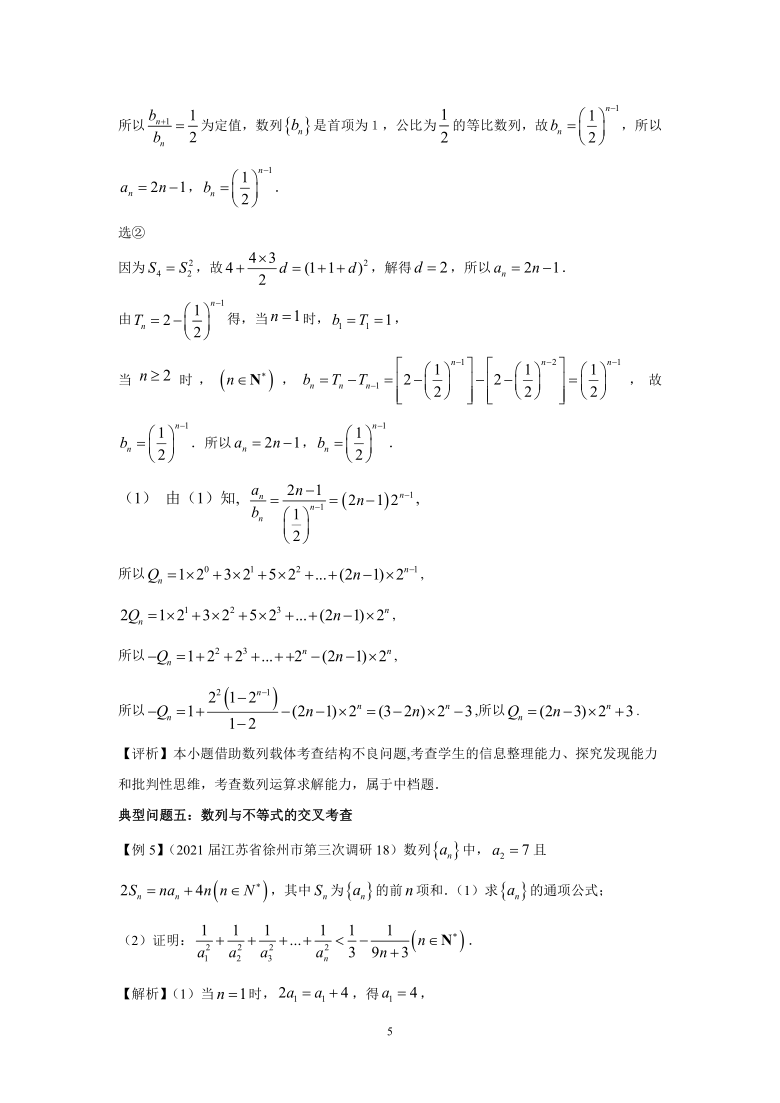 所以 \frac{b_{n+1}}{b_n}=\frac{1}{2} 为定值，数列{b_n}是首项为 1，公比为 \frac{1}{2} 的等比数列，故 b_n=\left(\frac{1}{2}\right)^{n-1}，所以
a_n=2n-1，b_n=\left(\frac{1}{2}\right)^{n-1}．
选②
因为 S_4=S_2^2，故 4+\frac{4×3}{2}d=(1+1+d)^2，解得 d=2，所以 a_n=2n-1．
由 T_n=2-\left(\frac{1}{2}\right)^{n-1} 得，当 n=1 时，b_1=T_1=1，
当 n≥2 时，(n∈N^*)，b_n=T_n-T_{n-1}=\left[2-\left(\frac{1}{2}\right)^{n-1}\right]-\left[2-\left(\frac{1}{2}\right)^{n-2}\right]=\left(\frac{1}{2}\right)^{n-1}，故
b_n=\left(\frac{1}{2}\right)^{n-1}．所以 a_n=2n-1，b_n=\left(\frac{1}{2}\right)^{n-1}．
（1） 由（1）知，\frac{a_n}{b_n}=\frac{2n-1}{\left(\frac{1}{2}\right)^{n-1}}=(2n-1)2^{n-1}，
所以 Q_n=1×2^0+3×2^1+5×2^2+...+(2n-1)×2^{n-1}，
2Q_n=1×2^1+3×2^2+5×2^3+...+(2n-1)×2^n，
所以 -Q_n=1+2^2+2^3+...++2^n-(2n-1)×2^n，
所以 -Q_n=1+\frac{2^2(1-2^{n-1})}{1-2}-(2n-1)×2^n=(3-2n)×2^n-3,所以 Q_n=(2n-3)×2^n+3．
【评析】本小题借助数列载体考查结构不良问题,考查学生的信息整理能力、探究发现能力
和批判性思维，考查数列运算求解能力，属于中档题．
典型问题五：数列与不等式的交叉考查
【例 5】（2021 届江苏省徐州市第三次调研 18）数列{a_n}中，a_2=7 且
2S_n=na_n+4n(n∈N^*)，其中 S_n 为{a_n}的前 n 项和．（1）求{a_n}的通项公式；
（2）证明：\frac{1}{a_1^2}+\frac{1}{a_2^2}+\frac{1}{a_3^2}+...+\frac{1}{a_n^2}<\frac{1}{3}-\frac{1}{9n+3}(n∈N^*)．
【解析】（1）当 n=1 时，2a_1=a_1+4，得 a_1=4，
5